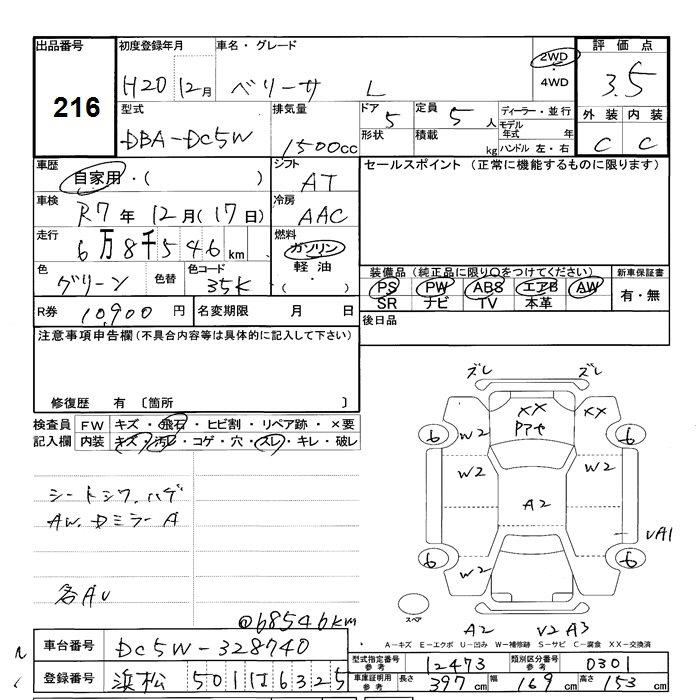 出品番号 216
初度登録年月 H20 12月
車名・グレード ベリーサ L
2WD ・ 4WD
評価点 3.5
型式 DBA-DC5W
排気量 1500cc
ドア 5
形状
定員 5 人
積載 kg
ディーラー・並行
モデル年式 年
ハンドル 左・右
外装 内装
C C
車歴 自家用・( )
シフト AT
セールスポイント (正常に機能するものに限ります)
車検 R7年 12月(17日)
冷房 AAC
走行 6万8千546km
燃料 ガソリン
軽油
・( )
色 グリーン 色替
色コード 35K
装備品 (純正品に限り〇をつけてください)
PS PW ABS エアB AW
SR ナビ TV 本革
新車保証書 有・無
R券 10,900円 名変期限 月 日
後日品
注意事項申告欄 (不具合内容等は具体的に記入して下さい)
修復歴 有 〔箇所 〕
検査員記入欄
FW キズ・飛石・ヒビ割・リペア跡・×要
内装 キズ・汚レ・コゲ・穴・スレ・キレ・破レ
シートシワ.ハゲ
AW.Dミラー A
各AU
@68546km
ズレ ズレ
XX XX
6 W2 Pアセ 6
W2 W2
A2
VA1
6 W2 6
スペア
A2 V2 A3
A-キズ E-エクボ U-凹み W-補修跡 S-サビ C-腐食 XX-交換済
車台番号 DC5W-328740
登録番号 浜松 501 は 6325
型式指定番号 参考 12473 類別区分番号 参考 0301
車庫証明用 参考 長さ 397cm 幅 169cm 高さ 153cm